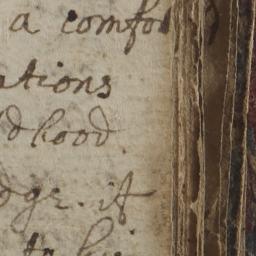 a comfo
ations
dhood
dge. if
to